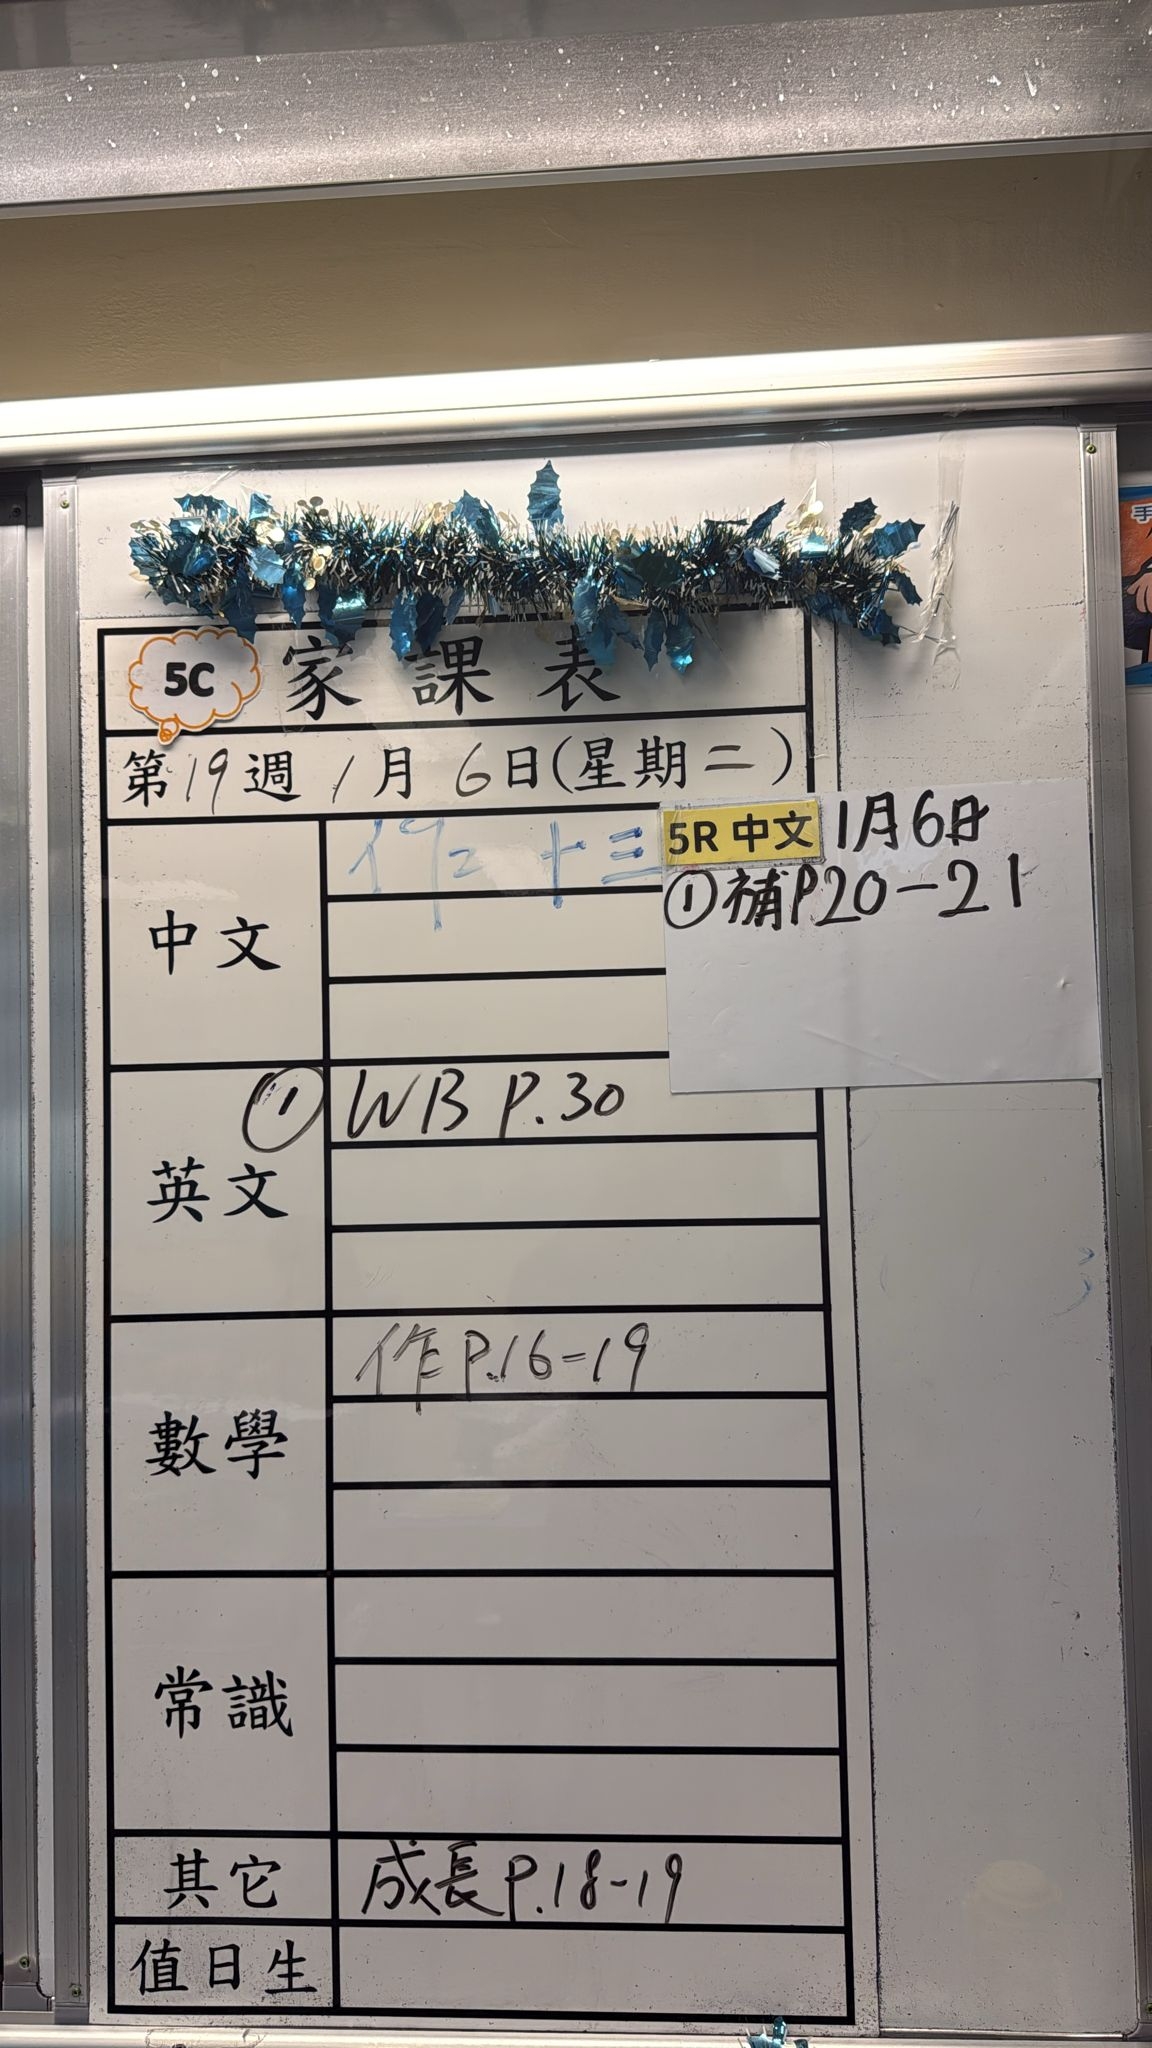 5C 家課表
第19週 1月6日(星期二)
5R 中文 1月6日
①補P20-21
中文
作二 十三
英文
① WB P.30
數學
作P.16-19
常識
其它
成長P.18-19
值日生
手